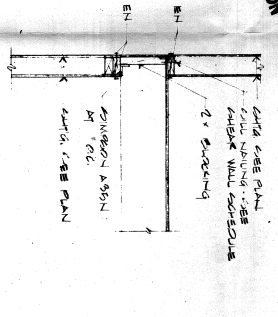 EN
EN
SHTG. SEE PLAN
SILL NAILING - SEE
SHEAR WALL SCHEDULE
2x BLOCKING
SIMPSON A35N
AT " O.C.
SHTG. SEE PLAN